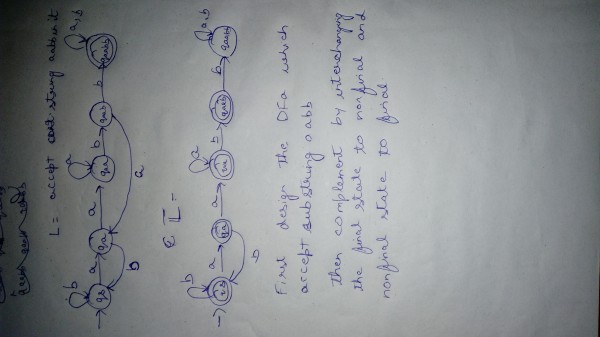 L = accept string aabb in it
a
b
a
a
a
b
b
a,b
a
qaa
qaab
qaabb
& L̅ =
b
a
b
a
a
b
b
a,b
First design the DFA which
accept substring aabb
then complement by interchanging
the final state to nonfinal and
nonfinal state to final.